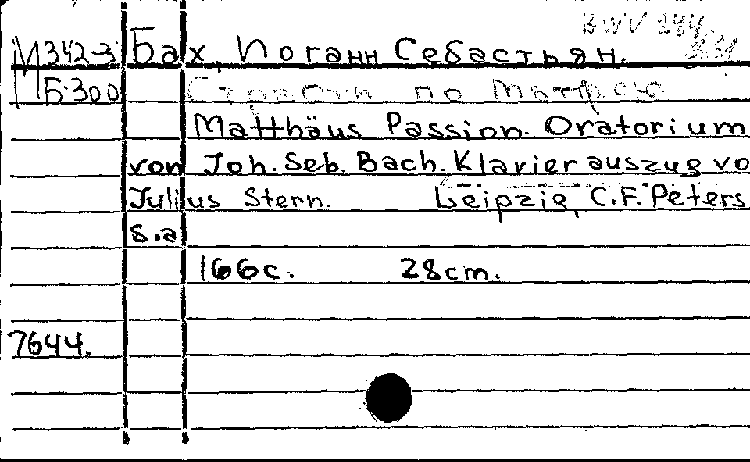 BWV 244
М 342-3 Бах, Иоганн Себастьян.
Б-300 Страсти по Матфею
Matthäus Passion. Oratorium
von Joh. Seb. Bach. Klavierauszug vo
Julius Stern. Leipzig, C.F. Peters
s.a
166c. 28cm.
7644.